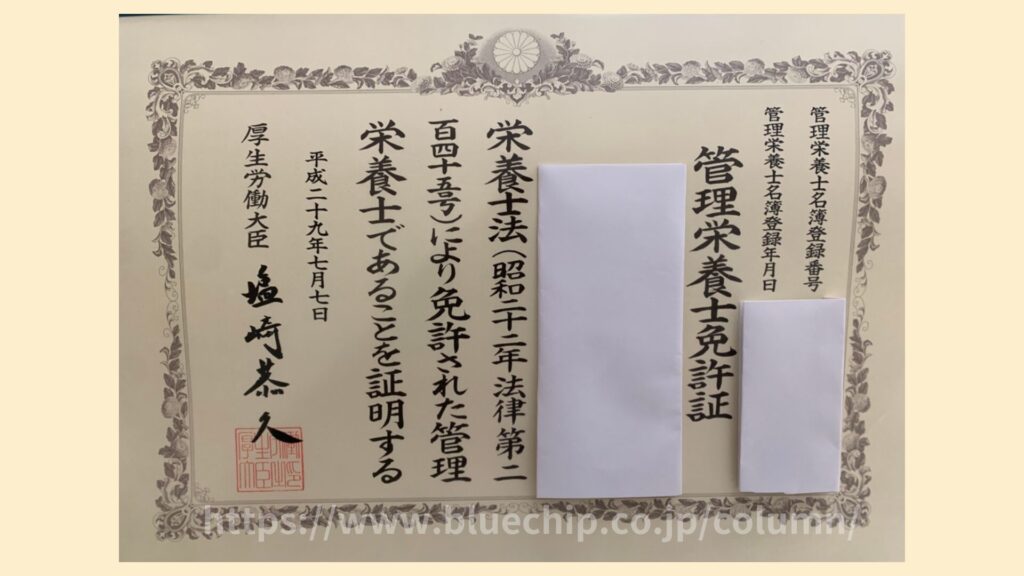 管理栄養士名簿登録番号
管理栄養士名簿登録年月日
管理栄養士免許証
栄養士法(昭和二十二年法律第二
百四十五号)により免許された管理
栄養士であることを証明する
平成二十九年七月七日
厚生労働大臣 塩崎恭久
https://www.bluechip.co.jp/column/